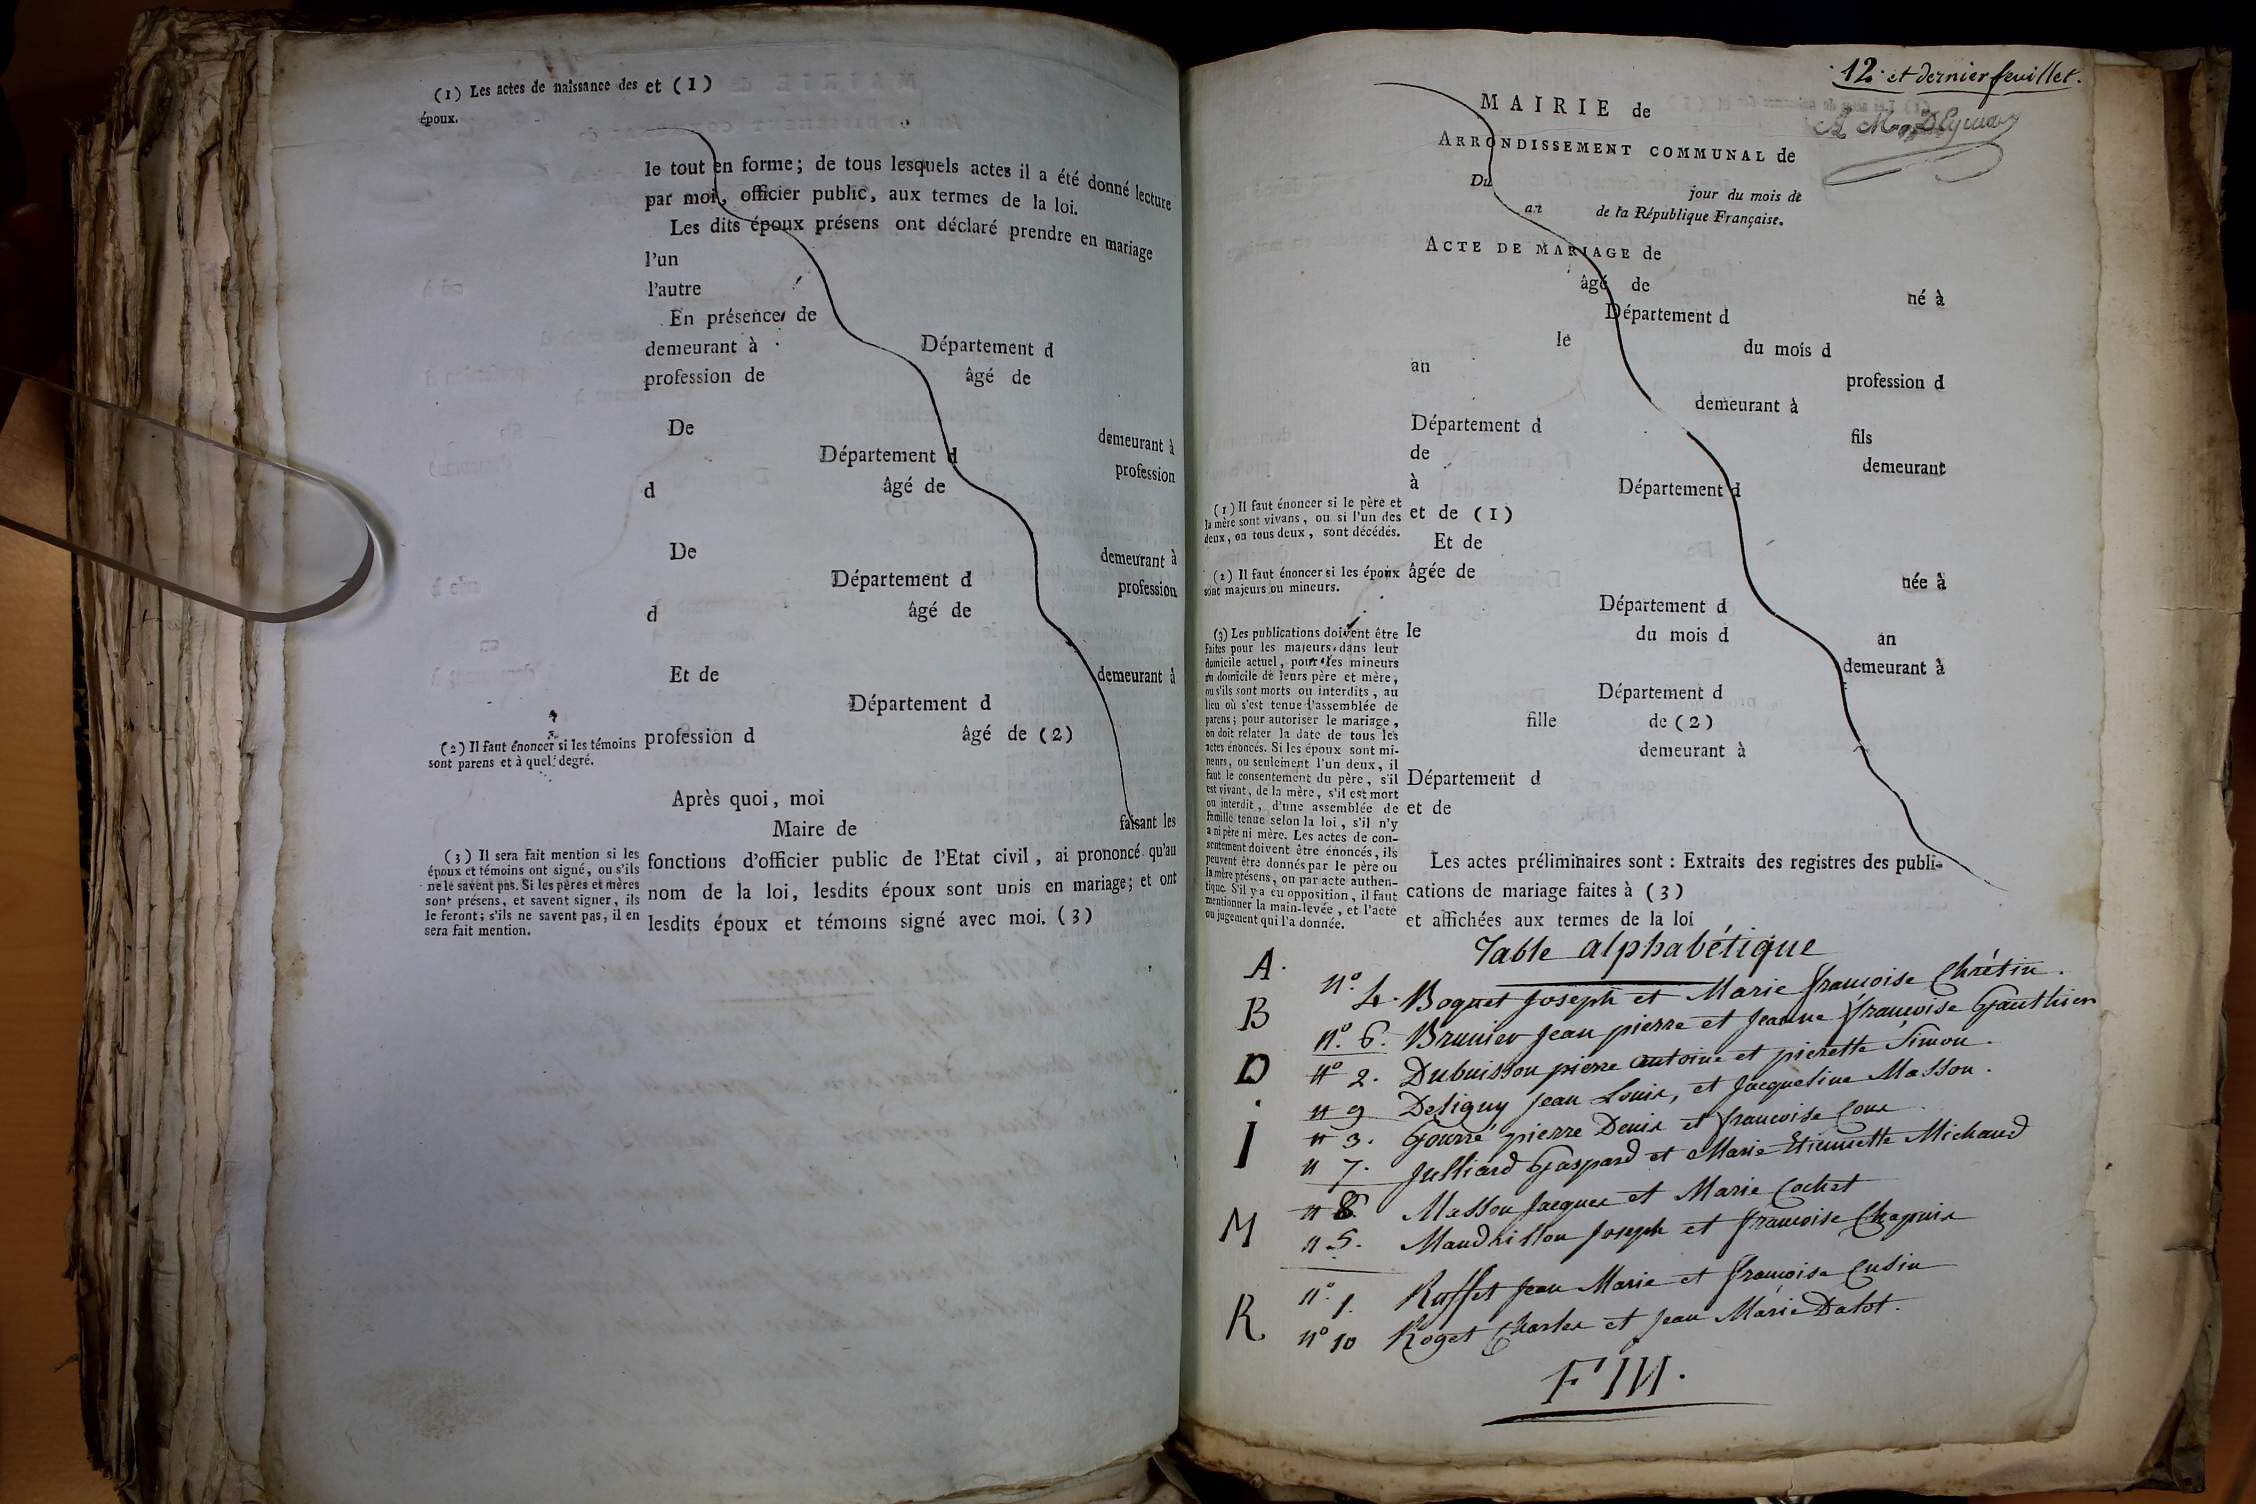 (1) Les actes de naissance des
époux.
et (1)
le tout en forme; de tous lesquels actes il a été donné lecture
par moi, officier public, aux termes de la loi.
Les dits époux présens ont déclaré prendre en mariage
l'un
l'autre
En présence de
demeurant à Département d
profession de âgé de
De demeurant à
Département d profession
d âgé de
De demeurant à
Département d profession
d âgé de
Et de demeurant à
Département d
(2) Il faut énoncer si les témoins
sont parens et à quel degré.
profession d âgé de (2)
Après quoi, moi
Maire de faisant les
(3) Il sera fait mention si les
époux et témoins ont signé, ou s'ils
ne le savent pas. Si les pères et mères
sont présens, et savent signer, ils
le feront; s'ils ne savent pas, il en
sera fait mention.
fonctions d'officier public de l'Etat civil, ai prononcé qu'au
nom de la loi, lesdits époux sont unis en mariage; et ont
lesdits époux et témoins signé avec moi. (3)
12. et dernier feuillet.
MAIRIE de
ARRONDISSEMENT COMMUNAL de
Du jour du mois de
an de la République Française.
ACTE DE MARIAGE de
âgé de né à
Département d
le du mois d
an profession d
demeurant à
Département d fils
de demeurant
à Département d
(1) Il faut énoncer si le père et
la mère sont vivans, ou si l'un des
deux, ou tous deux, sont décédés.
et de (1)
Et de
(2) Il faut énoncer si les époux
sont majeurs ou mineurs.
âgée de née à
Département d
le du mois d an
demeurant à
Département d
fille de (2)
demeurant à
Département d
et de
(3) Les publications doivent être
faites pour les majeurs dans leur
domicile actuel, pour les mineurs
au domicile de leurs père et mère,
ou s'ils sont morts ou interdits, au
lieu où s'est tenue l'assemblée de
parens; pour autoriser le mariage,
on doit relater la date de tous les
actes énoncés. Si les époux sont mi-
neurs, ou seulement l'un deux, il
faut le consentement du père, s'il
est vivant, de la mère, s'il est mort
ou interdit, d'une assemblée de
famille tenue selon la loi, s'il n'y
a ni père ni mère. Les actes de con-
sentement doivent être énoncés, ils
peuvent être donnés par le père ou
la mère présens, ou par acte authen-
tique. S'il y a eu opposition, il faut
mentionner la main-levée, et l'acte
ou jugement qui l'a donnée.
Les actes préliminaires sont: Extraits des registres des publi-
cations de mariage faites à (3)
et affichées aux termes de la loi
Table alphabétique
A.
B
n.º 4. Boquet Joseph et Marie françoise Chrétin.
n.º 6. Brunier Jean pierre et Jeanne françoise Gauthier
D
nº 2. Dubuisson pierre antoine et pierette Simon.
n 9 Deligny Jean Louis, et Jacqueline Masson.
n 3. Gourré pierre Denis et françoise Coux
J
n 7. Julliard Gaspard et Marie Etiennette Michaud
M
n 8. Masson Jacques et Marie Cochet
n 5. Maudrillon Joseph et françoise Chapuis
R
n.º 1. Ruffet Jean Marie et françoise Cusin
nº 10 Roget Charles et Jean Marie Dalot.
FIN.